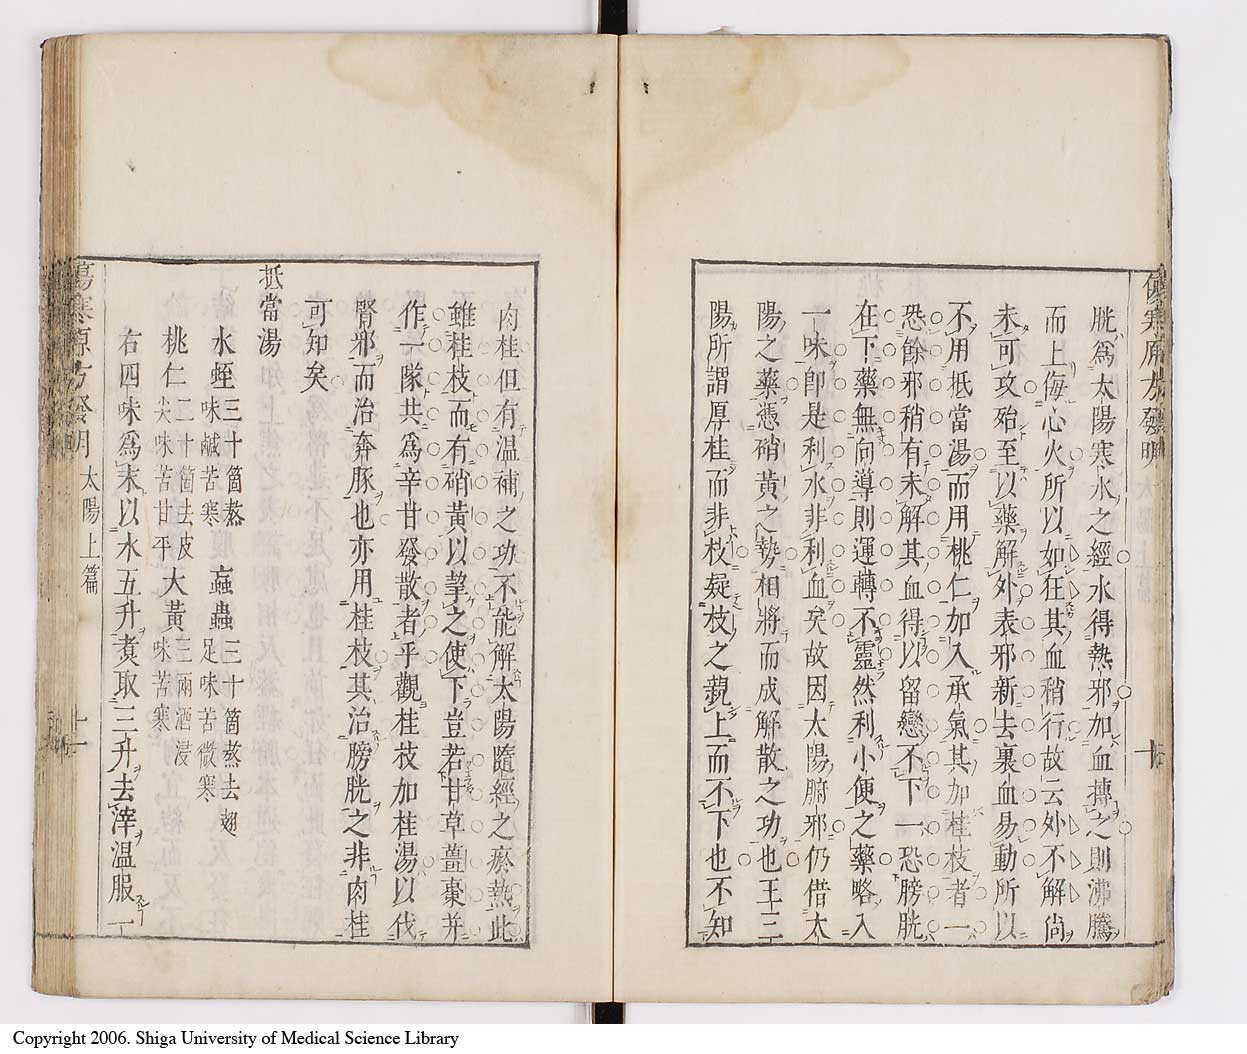 傷寒原方發明
十
胱爲太陽寒水之經水得熱邪加血摶之則沸騰
而上侮心火所以如狂其血稍行故云外不解尙
未可攻殆至以藥解外表邪新去裏血易動所以
不用抵當湯而用桃仁加入承氣其加桂枝者一
恐餘邪稍有未解其血得以留戀不下一恐膀胱
在下藥無向導則運轉不靈然利小便之藥略入
一味卽是利水非利血矣故因太陽腑邪仍借太
陽之藥憑硝黃之勢相將而成解散之功也王三
陽所謂厚桂而非枝疑枝之親上而不下也不知
肉桂但有温補之功不能解太陽隨經之瘀熱此
雖桂枝而有硝黃以挈之使下豈若甘草薑棗并
作一隊共爲辛甘發散者乎觀桂枝加桂湯以伐
腎邪而治奔豚也亦用桂枝其治膀胱之非肉桂
可知矣
抵當湯
水蛭三十箇熬味鹹苦寒 䖟蟲三十箇熬去翅足味苦微寒
桃仁二十箇去皮尖味苦甘平 大黃三兩酒浸味苦寒
右四味爲末以水五升煑取三升去滓温服一
傷寒原方發明 太陽上篇
十一
Copyright 2006. Shiga University of Medical Science Library